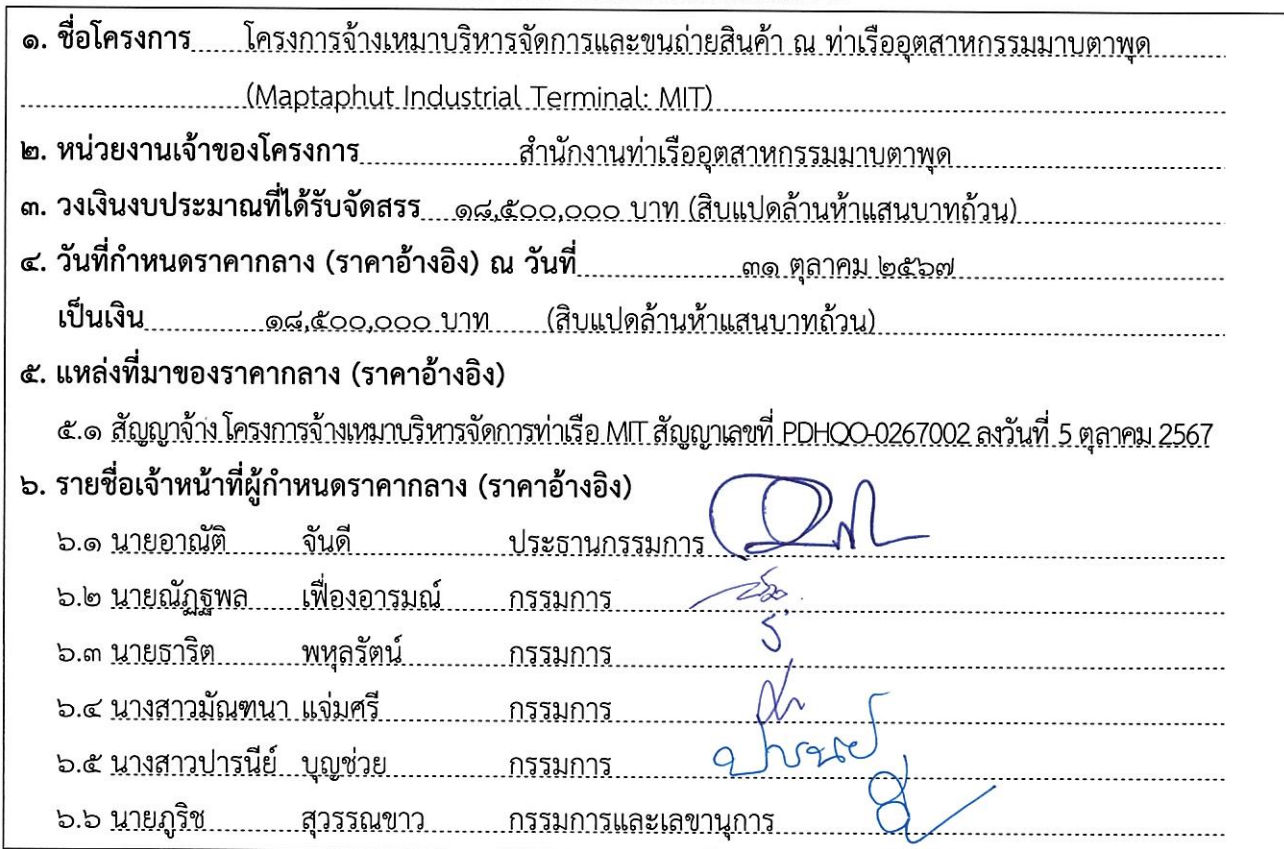 ๑. ชื่อโครงการ โครงการจ้างเหมาบริหารจัดการและขนถ่ายสินค้า ณ ท่าเรืออุตสาหกรรมมาบตาพุด
(Maptaphut Industrial Terminal: MIT)
๒. หน่วยงานเจ้าของโครงการ สำนักงานท่าเรืออุตสาหกรรมมาบตาพุด
๓. วงเงินงบประมาณที่ได้รับจัดสรร ๑๘,๕๐๐,๐๐๐ บาท (สิบแปดล้านห้าแสนบาทถ้วน)
๔. วันที่กำหนดราคากลาง (ราคาอ้างอิง) ณ วันที่ ๓๑ ตุลาคม ๒๕๖๗
เป็นเงิน ๑๘,๕๐๐,๐๐๐ บาท (สิบแปดล้านห้าแสนบาทถ้วน)
๕. แหล่งที่มาของราคากลาง (ราคาอ้างอิง)
๕.๑ สัญญาจ้าง โครงการจ้างเหมาบริหารจัดการท่าเรือ MIT สัญญาเลขที่ PDHQO-0267002 ลงวันที่ 5 ตุลาคม 2567
๖. รายชื่อเจ้าหน้าที่ผู้กำหนดราคากลาง (ราคาอ้างอิง)
๖.๑ นายอาณัติ จันดี ประธานกรรมการ
๖.๒ นายณัฏฐพล เฟื่องอารมณ์ กรรมการ
๖.๓ นายธาริต พหุลรัตน์ กรรมการ
๖.๔ นางสาวมัณฑนา แจ่มศรี กรรมการ
๖.๕ นางสาวปารนีย์ บุญช่วย กรรมการ ปารนีย์
๖.๖ นายภูริช สุวรรณขาว กรรมการและเลขานุการ